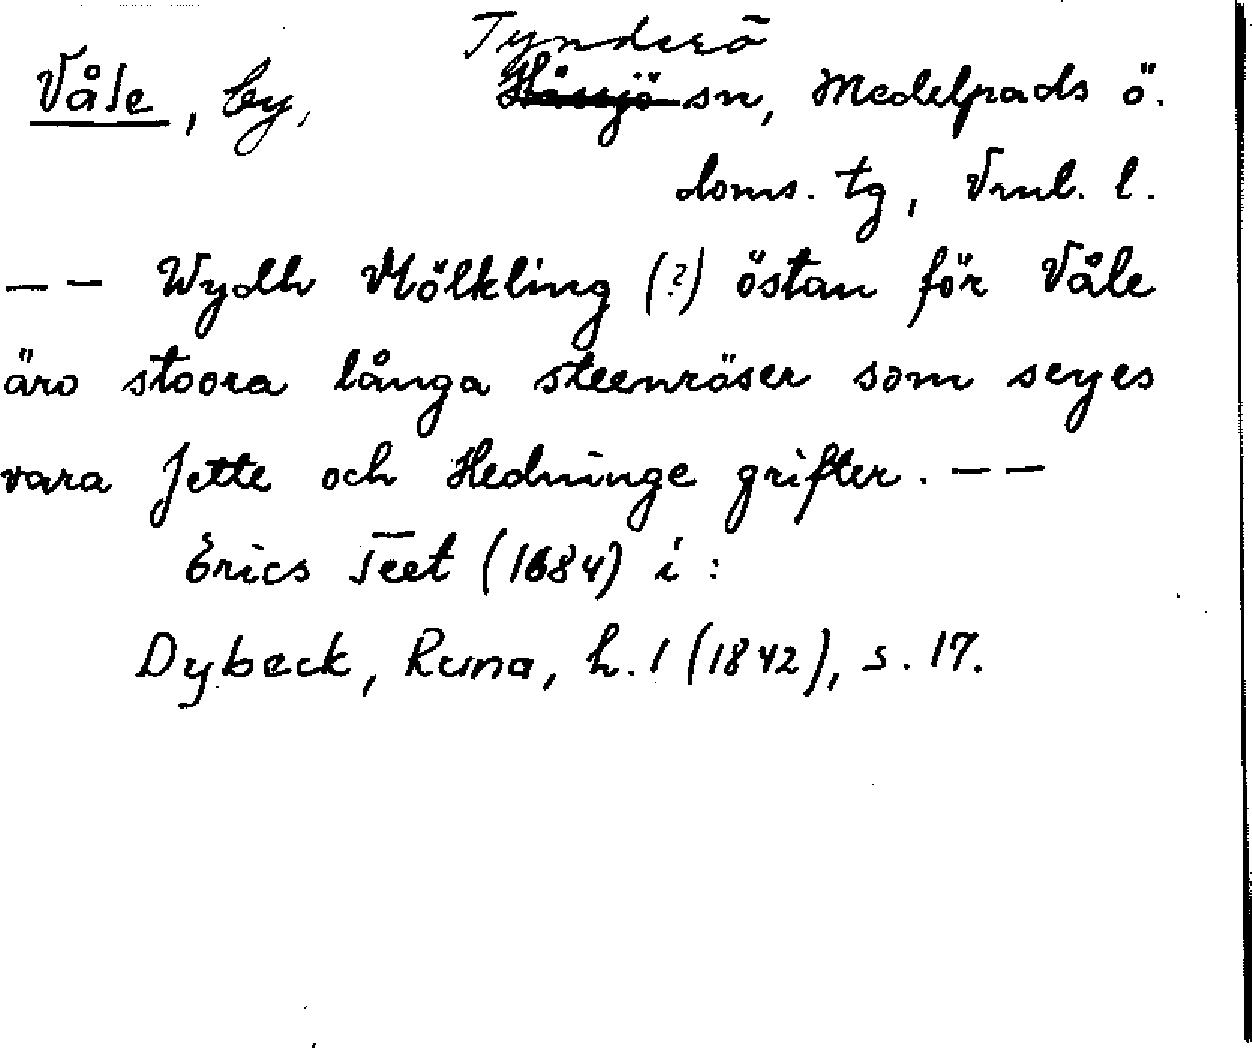 Tynderö
Våle, by, Hässjö sn, Medelpads ö.
doms. tg, Vnl. l.
-- Wydh Mölkling (?) östan för Våle
äro stoora långa steenröser som seyes
vara Jette och Hedninge grifter. --
Erics Teet (1684) i:
Dybeck, Runa, h. 1 (1842), s. 17.